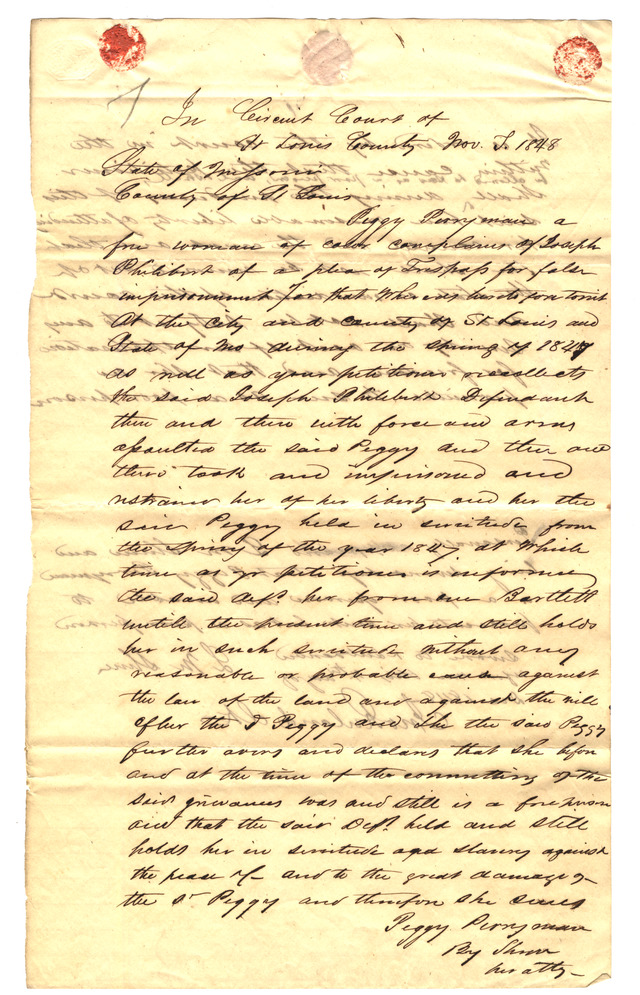 In Circuit Court of
St Louis County Nov. T. 1848
State of Missouri
County of St Louis
Peggy Perryman a
free woman of color complains of Joseph
Philibert of a plea of Trespass for false
imprisonment for that Whereas heretofore towit
At the city and county of St Louis and
State of Mo during the spring of 1847
as well as your petitioner recollects
the said Joseph Philibert Defendant
then and there with force and arms
assaulted the said Peggy and then and
there took and imprisoned and
restrained her of her liberty and her the
said Peggy held in servitude from
the Spring of the year 1847 at Which
time as yr petitioner is informed
the said deft. her from one Bartlett
untill the present time and still holds
her in such servitude without any
reasonable or probable cause against
the law of the land and against the will
of her the sd Peggy and She the said Peggy
further avers and declares that she before
and at the time of the committing of the
said grievances was and still is a free person
and that the said Deft. held and still
holds her in servitude and slavery against
the peace &c and to the great damage of
the sd Peggy and therefore she sues
Peggy Perryman
By Shreve
her atty